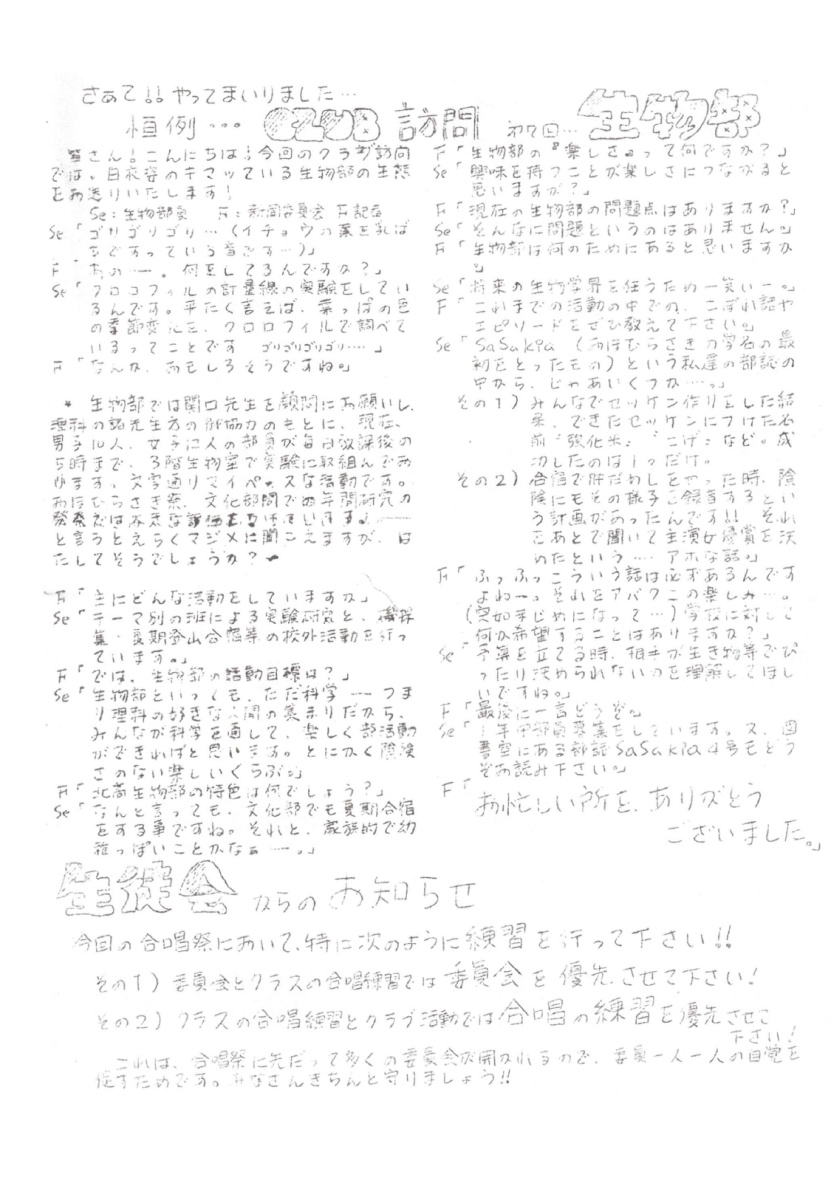 さあて!!やってまいりました…
恒例… CLUB 訪問 オ7回… 生物部
皆さん!こんにちは!今回のクラブ訪問
では、白衣姿のキマッている生物部の生態
をお送りいたします!
Se:生物部員 F:新聞委員会 F記者
Se「ゴリゴリゴリ…(イチョウの葉を乳ば
ちですっている音です…)」
F「あの―。何をしてるんですか?」
Se「クロロフィルの計量線の実験をしてい
るんです。平たく言えば、葉っぱの色
の季節変化を、クロロフィルで調べて
いるってことです ゴリゴリゴリ…」
F「なんか、おもしろそうですね。」
* 生物部では関口先生を顧問にお願いし、
理科の諸先生方の御協力のもとに、現在、
男子10人、女子に人の部員が毎日放課後の
5時まで、3階生物室で実験に取組んでお
ります。文字通りマイペースな活動です。
おほむらさき祭、文化部門での年間研究の
発表では
と言うとえらくマジメに聞こえますが、は
たしてそうでしょうか?
F「主にどんな活動をしていますか」
Se「テーマ別の班による実験研究と、機採
集・夏期登山合宿等の校外活動を行っ
ています。」
F「では、生物部の活動目標は?」
Se「生物部といっても、ただ科学――つま
り理科の好きな人間の集まりだから、
みんなが科学を通して、楽しく部活動
ができればと思います。とにかく陰険
さのない楽しいくらぶ。」
F「北高生物部の特色は何でしょう?」
Se「なんと言っても、文化部でも夏期合宿
をする事ですね。それと、家族的で幼
稚っぽいことかなぁ――。」
F「生物部の『楽しさ』って何ですか?」
Se「興味を持つことが楽しさにつながると
思いますが?」
F「現在の生物部の問題点はありますか?」
Se「そんなに問題というのはありません。」
F「生物部は何のためにあると思いますか
」
Se「将来の生物学界を担うため―笑い―。」
F「これまでの活動の中での、こぼれ話や
エピソードをぜひ教えて下さい。」
Se「SaSakia(おほむらさきの学名の最
初をとったもの)という私達の部誌の
中から、じゃあいくつか…。」
その1)みんなでセッケン作りをした結
果、できたセッケンにつけた名
前“強化米”“こげ”など。成
功したのは1つだけ。
その2)合宿で肝だめしをやった時、陰
険にもその様子を録音するとい
う計画があったんです!!それ
をあとで聞いて主演女優賞を決
めたという…アホな話。」
F「ふっふっこういう話は必ずあるんです
よねー。それをアバクこの楽しみ…。
(突如まじめになって…)学校に対して
何か希望することはありますか?」
Se「予算を立てる時、相手が生き物等でぴ
ったり決められないのを理解してほし
いですね。」
F「最後に一言どうぞ。」
Se「1年中部員募集をしています。又、図
書室にある部誌SaSakia4号もどう
ぞお読み下さい。」
F「お忙しい所を、ありがとう
ございました。」
生徒会からのお知らせ
今回の合唱祭において、特に次のように練習を行って下さい!!
その1)委員会とクラスの合唱練習では委員会を優先させて下さい!
その2)クラスの合唱練習とクラブ活動では合唱の練習を優先させて
下さい!
これは、合唱祭に先だって多くの委員会が開かれるので、委員一人一人の自覚を
促すためです。みなさんきちんと守りましょう!!